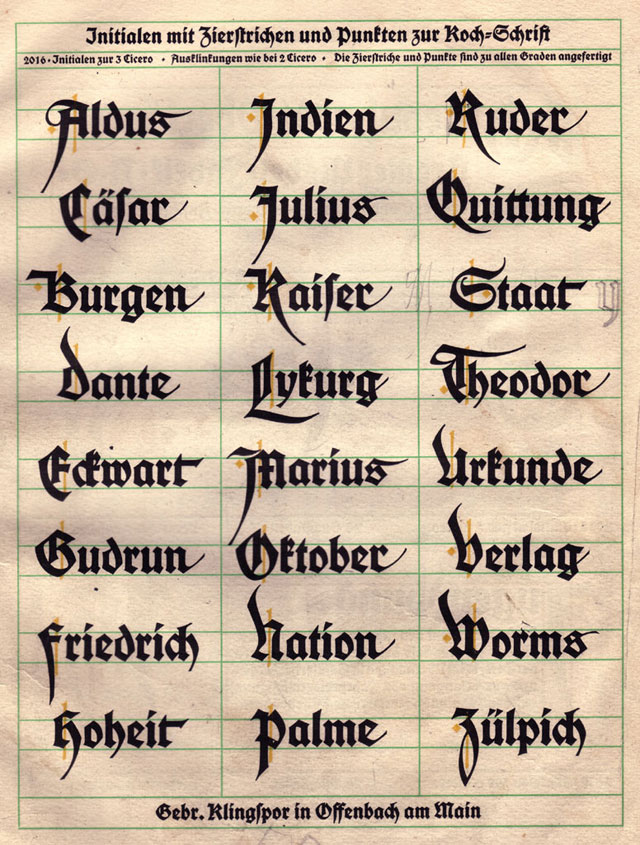 Initialen mit Zierſtrichen und Punkten zur Koch=Schrift
2016 · Initialen zur 3 Cicero · Ausklinkungen wie bei 2 Cicero · Die Zierſtriche und Punkte ſind zu allen Graden angefertigt
Aldus Indien Ruder
Cäſar Julius Quittung
Burgen Kaiſer Staat
Dante Lykurg Theodor
Eckwart Marius Urkunde
Gudrun Oktober Verlag
Friedrich Nation Worms
Hoheit Palme Zülpich
Gebr. Klingſpor in Offenbach am Main